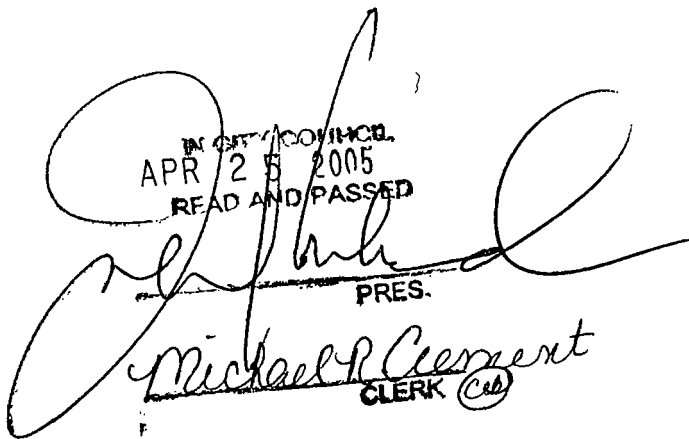 IN CITY COUNCIL
APR 25 2005
READ AND PASSED
PRES.
Michael R Clement
CLERK